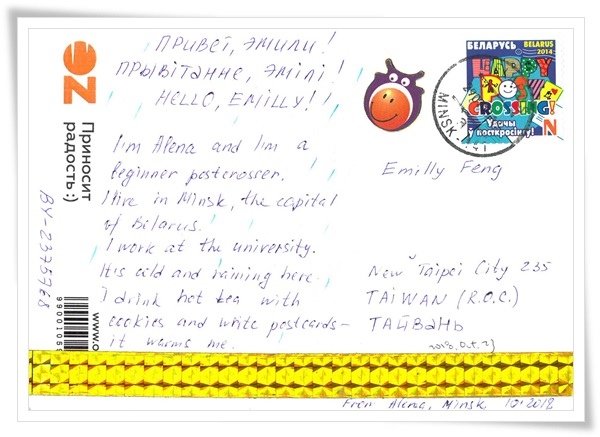 ПРИВЕТ, ЭМИЛИ!
ПРЫВІТАННЕ, ЭМІЛІ!
HELLO, EMILLY!
I'm Alena and I'm a
beginner postcrosser.
I live in Minsk, the capital
of Belarus.
I work at the university.
It is cold and raining here.
I drink hot tea with
cookies and write postcards –
it warms me.
OZ
Приносит
радость :)
BY-2375768
www.o
БЕЛАРУСЬ BELARUS
2014
HAPPY
POST
CROSSING!
Удачы
ў посткросінгу!
N
MINSK
Emilly Feng
New Taipei City 235
TAIWAN (R.O.C.)
ТАЙВАНЬ
2018. Oct. 29
From Alena, Minsk, 10.2018